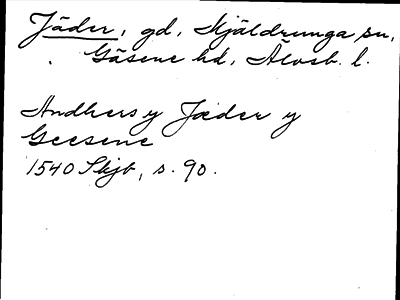 Jäder, gd, Kjäldrunga sn,
Gäsene hd, Älvsb. l.
Andhers y Jæder y
Geesene
1540 Skjb, s. 90.